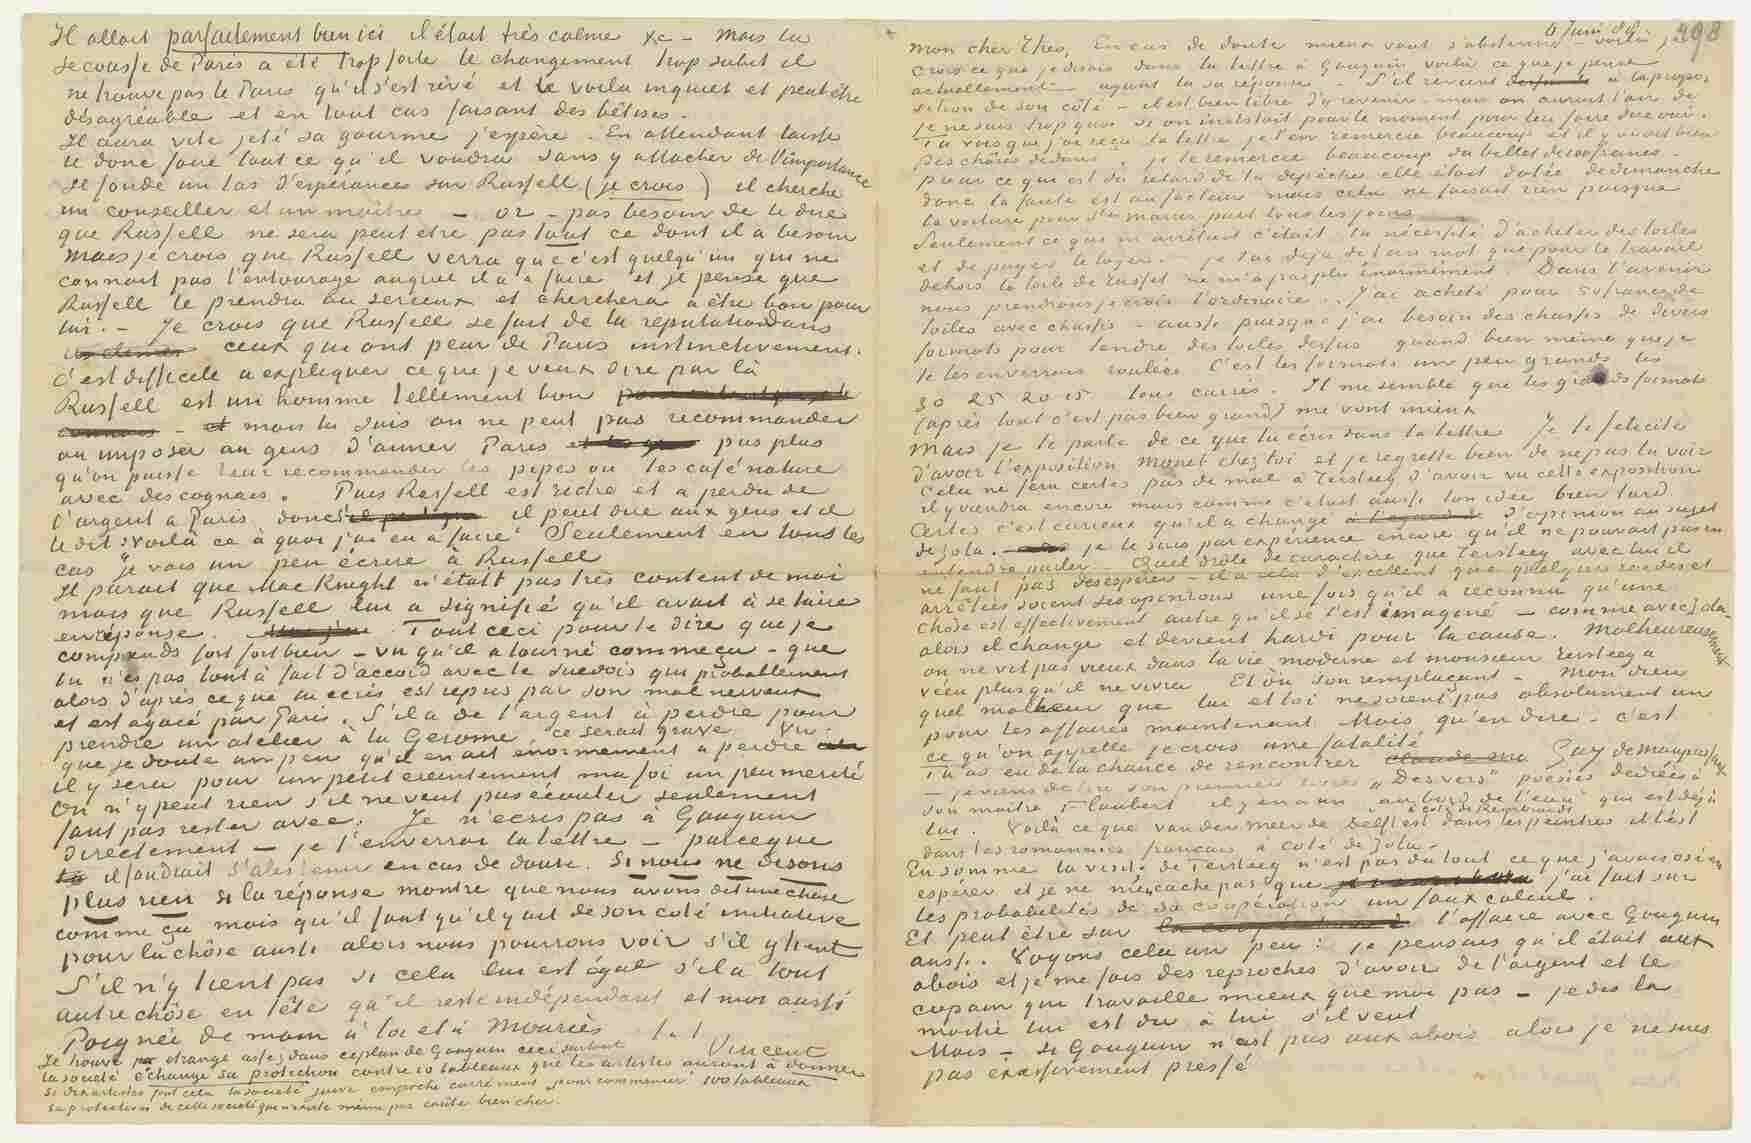 Il allait parfaitement bien ici il était très calme &c – Mais la
secousse de Paris a été trop forte le changement trop subit il
ne trouve pas le Paris qu'il s'est rêvé et le voila inquiet et peut être
désagréable et en tout cas faisant des bêtises.
Il aura vite jeté sa gourme j'espère. En attendant laisse
le donc faire tout ce qu'il voudra sans y attacher de l'importance
Il fonde un tas d'espérances sur Russell (je crois) il cherche
un conseiller et un maître – or – pas besoin de te dire
que Russell ne sera peut etre pas tout ce dont il a besoin
mais je crois que Russell verra que c'est quelqu'un qui ne
connait pas l'entourage auquel il a à faire et je pense que
Russell le prendra au serieux et cherchera à être bon pour
lui. – Je crois que Russell se fait de la reputation dans
ceux qui ont peur de Paris instinctivement.
C'est difficile a expliquer ce que je veux dire par là
Russell est un homme tellement bon
– et mais tu sais on ne peut pas recommander
ou imposer au gens d'aimer Paris pas plus
qu'on puisse leur recommander les pipes ou les café nature
avec des cognacs. Puis Russell est riche et a perdu de
l'argent a Paris donc il peut dire aux gens et il
le dit: "voilà ce à quoi j'ai eu a faire" Seulement en tous les
cas je vais un peu écrire à Russell
Il parait que MacKnight n'était pas très content de moi
mais que Russell lui a signifié qu'il avait à se taire
en réponse. Tout ceci pour te dire que je
comprends fort fort bien – vu qu'il a tourné comme ça – que
tu n'es pas tout à fait d'accord avec le Suedois qui probablement
alors d'après ce que tu écris est repris par son mal nerveux
et est agacé par Paris. S'il a de l'argent à perdre pour
prendre un atelier à la Gerome ce serait grave Vu
que je doute un peu qu'il en ait énormement a perdre
il y sera pour un petit éreintement ma foi un peu merité
On n'y peut rien s'il ne veut pas écouter seulement
faut pas rester avec. Je n'écris pas à Gauguin
directement – je t'enverrai la lettre – parceque
il faudrait s'abstenir en cas de doute. Si nous ne disons
plus rien si la réponse montre que nous avons dit une chôse
comme ça mais qu'il faut qu'il y ait de son coté initiative
pour la chôse aussi alors nous pourrons voir s'il y tient
S'il n'y tient pas si cela lui est égal s'il a tout
autre chôse en tête qu'il reste indépendant et moi aussi
Poignée de main à toi et à Mouriès t. à t.
Vincent
Je trouve étrange assez dans ce plan de Gauguin ceci surtout
la societé échange sa protection contre 10 tableaux que les artistes auront à donner
si dix artistes font cela la societé juive empoche carrément "pour commencer" 100 tableaux
sa protection de cette société qui n'existe même pas coûte bien cher.
6 Juin 88
498
mon cher Theo, En cas de doute mieux vaut s'abstenir – voilà je
crois ce que je disais dans la lettre à Gauguin voilà ce que je pense
actuellement – ayant lu sa réponse – S'il revient à la propo-
sition de son côté – il est bien libre d'y revenir – mais on aurait l'air de
je ne sais trop quoi si on insistait pour le moment pour lui faire dire oui.
Tu vois que j'ai reçu ta lettre je t'en remercie beaucoup et il y avait bien
des chôses dedans. je te remercie beaucoup du billet de 100 francs.
pour ce qui est du retard de la depêche elle était datée de dimanche
donc la faute est au facteur mais cela ne faisait rien puisque
la voiture pour Stes maries part tous les jours
Seulement ce qui m'arrêtait c'était la nécessité d'acheter des toiles
et de payer le loyer. – je t'ai déjà dit un mot que pour le travail
dehors la toile de Tasset ne m'a pas plu énormément Dans l'avenir
nous prendrons je crois l'ordinaire. J'ai acheté pour 50 francs de
toiles avec chassis – aussi puisque j'ai besoin des chassis de divers
formats pour tendre des toiles dessus quand bien même que je
te les enverrais roulées C'est les formats un peu grands les
30 25 20 15 tous carrés. Il me semble que les grands formats
(après tout c'est pas bien grand) me vont mieux
Mais je te parle de ce que tu écris dans ta lettre Je te felicite
d'avoir l'exposition Monet chez toi et je regrette bien de ne pas la voir
Cela ne fera certes pas de mal à Tersteeg d'avoir vu cette exposition
il y viendra encore mais comme c'était aussi ton idée bien tard
Certes c'est curieux qu'il a changé d'opinion au sujet
de Zola. je le sais par expérience encore qu'il ne pouvait pas en
entendre parler – Quel drôle de caractère que Tersteeg avec lui il
ne faut pas desesperer – il a cela d'excellent que quelques roides et
arrêtées soient ses opinions une fois qu'il a reconnu qu'une
chôse est effectivement autre qu'il se l'est imaginé – comme avec Zola
alors il change et devient hardi pour la cause. Malheureusement
on ne vit pas vieux dans la vie moderne et monsieur Tersteeg a
vécu plus qu'il ne vivra Et où son remplaçant – Mon dieu
quel malheur que lui et toi ne soient pas absolument un
pour les affaires maintenant Mais qu'en dire – c'est
ce qu'on appelle je crois une fatalité
Tu as eu de la chance de rencontrer Guy de maupassant
– je viens de lire son premier livre "Des vers" poésies dediées à
son maître Flaubert il y en a un "au bord de l'eau" qui est déjà
lui. Voilà ce que van der Meer de Delft est à coté de Rembrandt dans les peintres il l'est
dans les romanciers français à coté de Zola –
En somme la visite de Tersteeg n'est pas du tout ce que j'avais osé en
espérer et je ne me cache pas que j'ai fait sur
les probabilités de sa coopération un faux calcul.
Et peut être sur l'affaire avec Gauguin
aussi. Voyons cela un peu: je pensais qu'il était aux
abois et je me fais des reproches d'avoir de l'argent et le
copain qui travaille mieux que moi pas – je dis la
moitié lui est du à lui s'il veut
Mais – si Gauguin n'est pas aux abois alors je ne suis
pas excessivement pressé